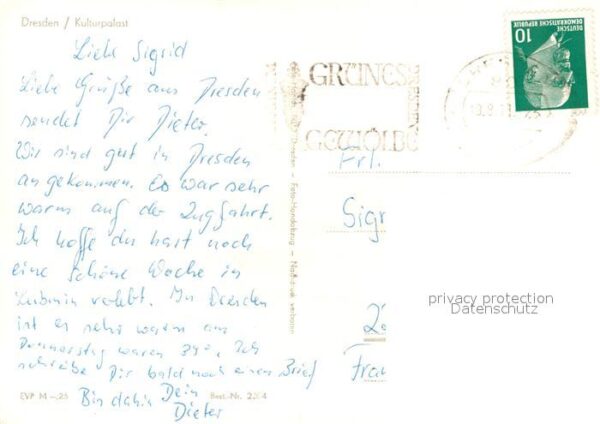 Dresden / Kulturpalast
Liebe Sigrid
Liebe Grüße aus Dresden
sendet Dir Dieter.
Wir sind gut in Dresden
angekommen. Es war sehr
warm auf der Zugfahrt.
Ich hoffe du hast noch
eine schöne Woche in
Lubmin verlebt. In Dresden
ist es sehr warm am
Donnerstag waren 34°. Ich
schreibe Dir bald noch einen Brief
Bis dahin Dein
Dieter
EVP M -,25
Best.-Nr.
Dresden - Foto-Handabzug - Nachdruck verboten
GRÜNES
GEWÖLBE
DEUTSCHE
DEMOKRATISCHE REPUBLIK
10
Frl.
Sigr
Frau
privacy protection
Datenschutz